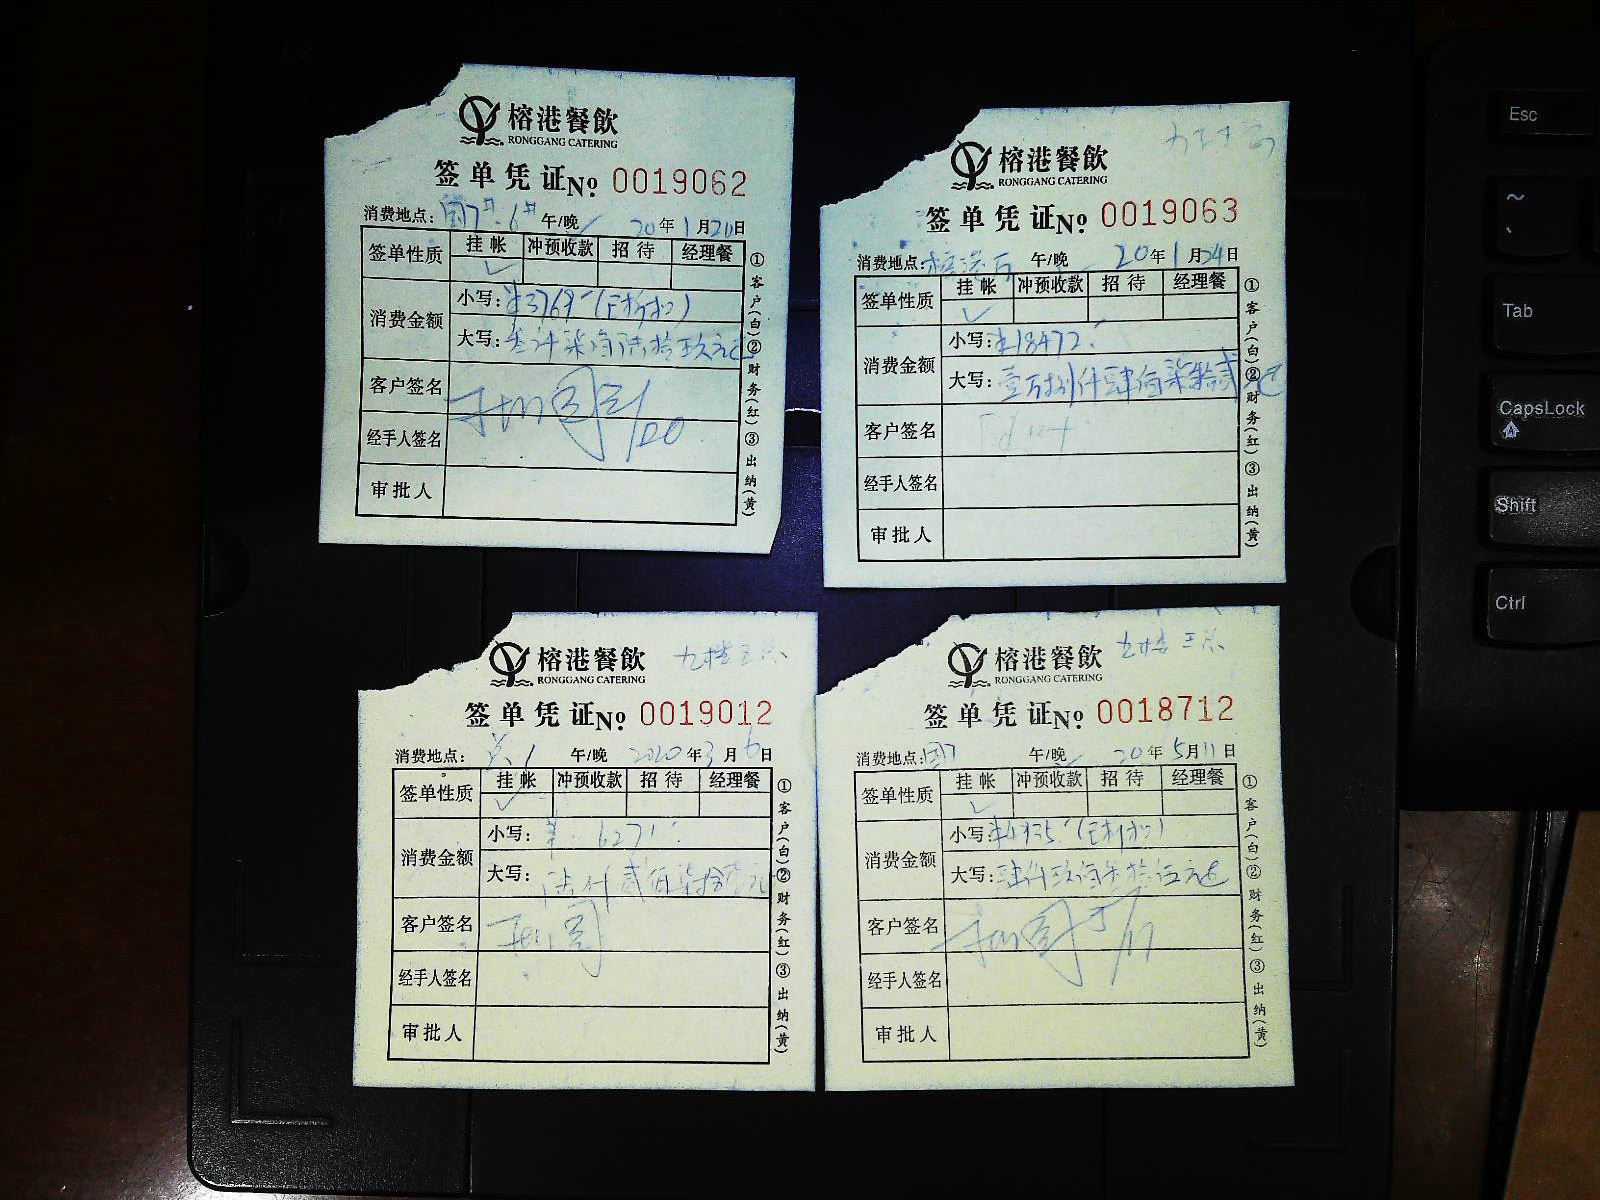 榕港餐飲
RONGGANG CATERING
签单凭证 No 0019062
消费地点: 国7#.6# 午/晚 20年1月20日
签单性质 挂帐 冲预收款 招待 经理餐
✓
消费金额 小写: ¥3769.-(已折扣)
大写: 叁仟柒佰陆拾玖元正
客户签名
1/20
经手人签名
审批人
①客户(白)②财务(红)③出纳(黄)
榕港餐飲
RONGGANG CATERING
签单凭证 No 0019063
消费地点: 午/晚 20年1月24日
签单性质 挂帐 冲预收款 招待 经理餐
✓
消费金额 小写: ¥18472.-
大写: 壹万捌仟肆佰柒拾贰元正
客户签名
经手人签名
审批人
①客户(白)②财务(红)③出纳(黄)
榕港餐飲
RONGGANG CATERING
九楼王总
签单凭证 No 0019012
消费地点: 午/晚 2020年3月6日
签单性质 挂帐 冲预收款 招待 经理餐
✓
消费金额 小写: ¥6271.-
大写: 陆仟贰佰柒拾壹元
客户签名
经手人签名
审批人
①客户(白)②财务(红)③出纳(黄)
榕港餐飲
RONGGANG CATERING
九楼王总
签单凭证 No 0018712
消费地点: 国7 午/晚 20年5月11日
签单性质 挂帐 冲预收款 招待 经理餐
✓
消费金额 小写: ¥4935.-(已折扣)
大写: 肆仟玖佰叁拾伍元正
客户签名
经手人签名
审批人
①客户(白)②财务(红)③出纳(黄)
Esc
~
Tab
CapsLock
Shift
Ctrl